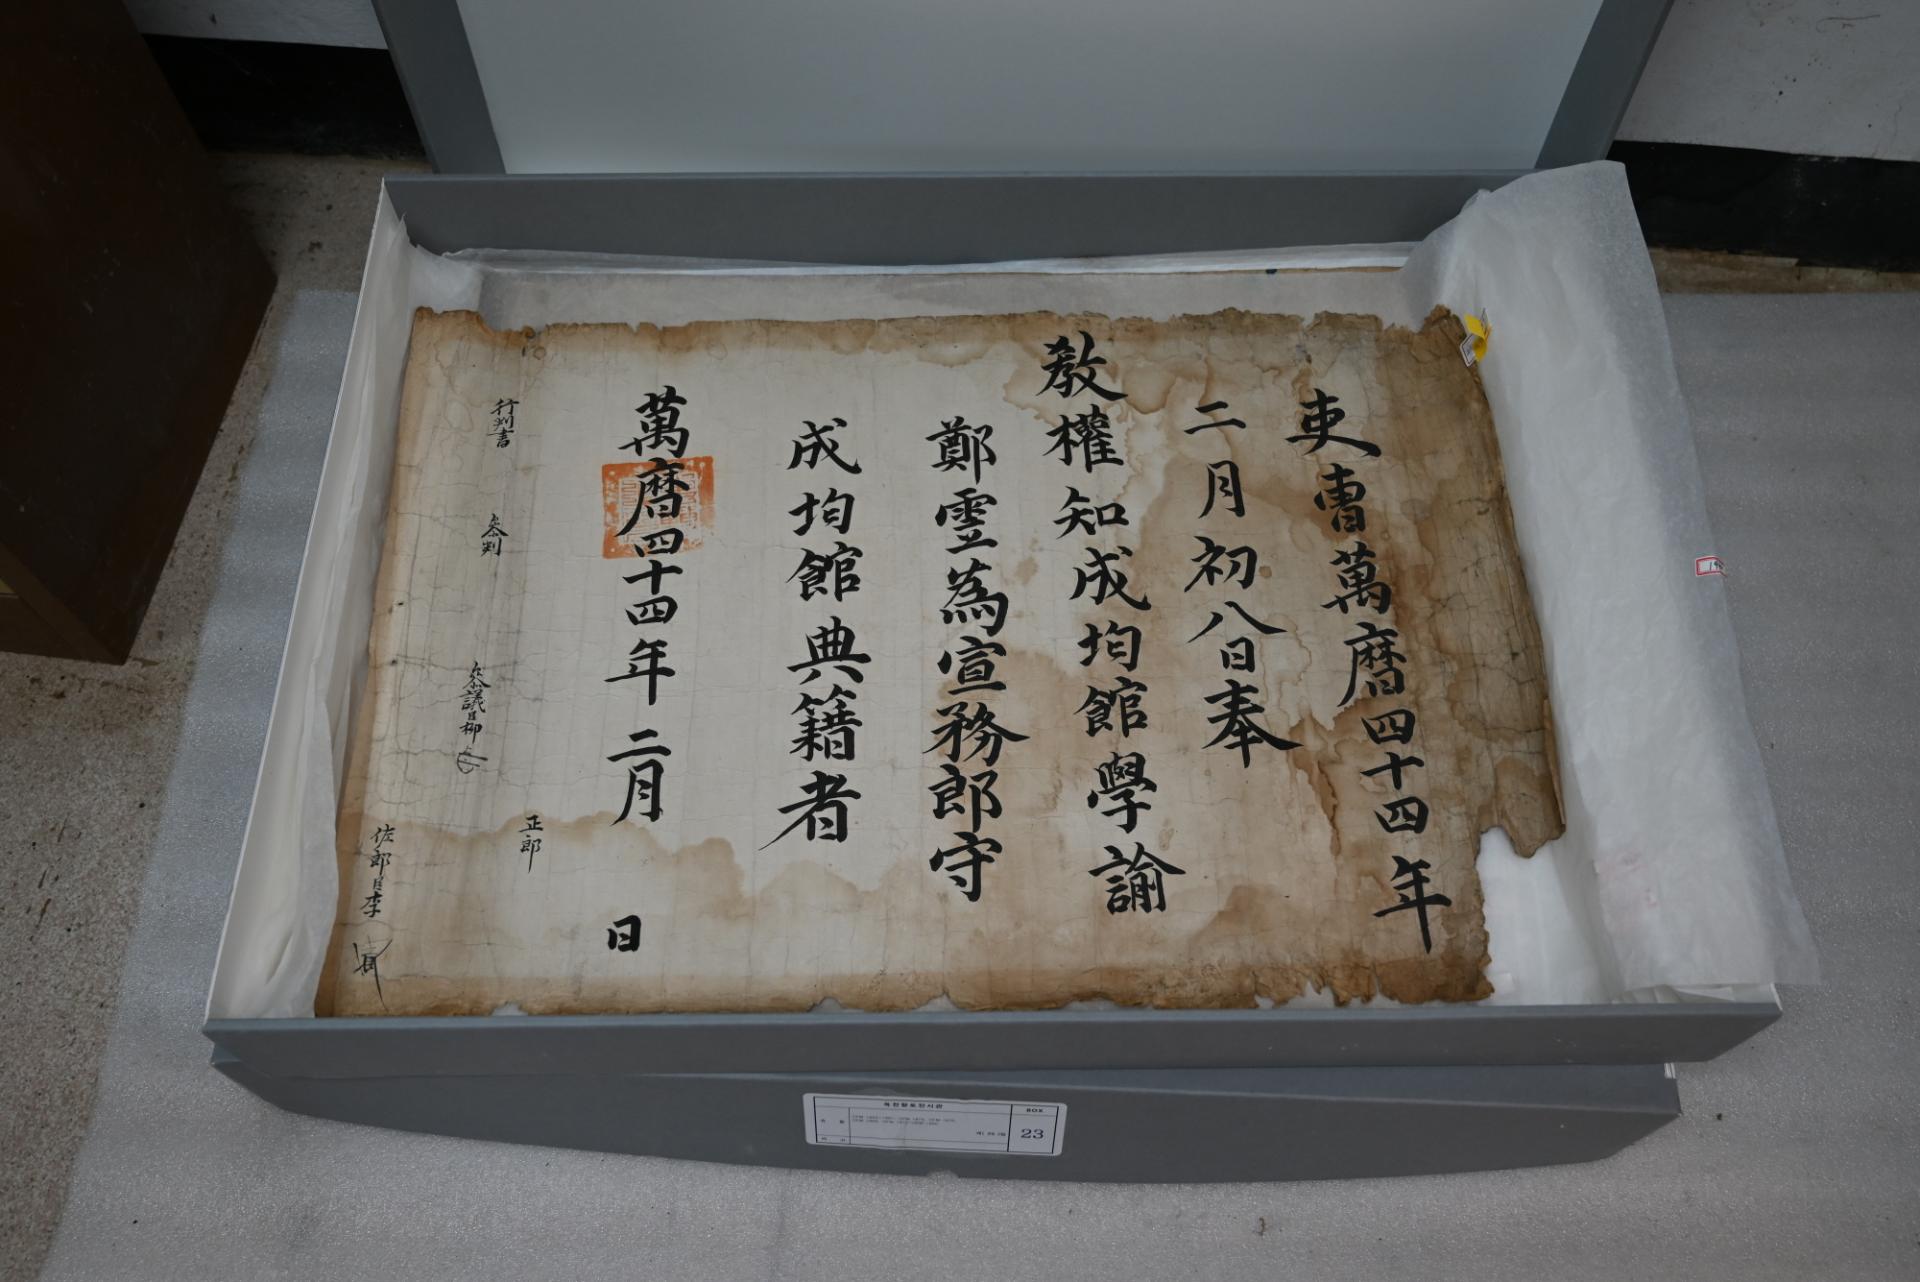 吏曹萬曆四十四年
二月初八日奉
敎權知成均館學諭
鄭霊為宣務郎守
成均館典籍者
萬曆四十四年二月 日
行判書 叅判 叅議臣柳
正郎
佐郎臣李
BOX
23